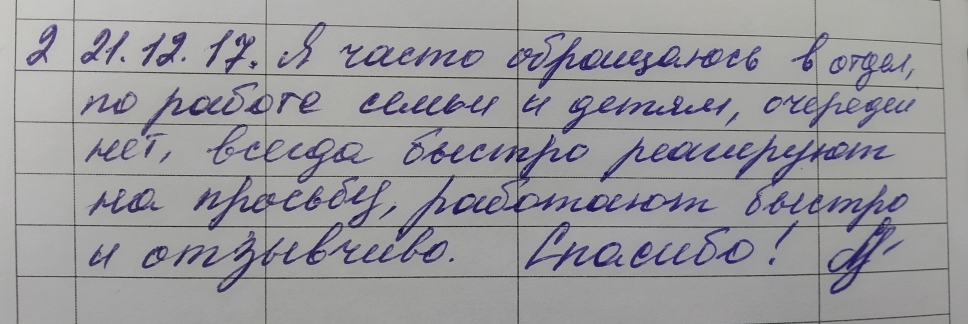 2 21.12.17. Я часто обращаюсь в отдел,
по работе семьи и детям, очередей
нет, всегда быстро реагируют
на просьбу, работают быстро
и отзывчиво. Спасибо!